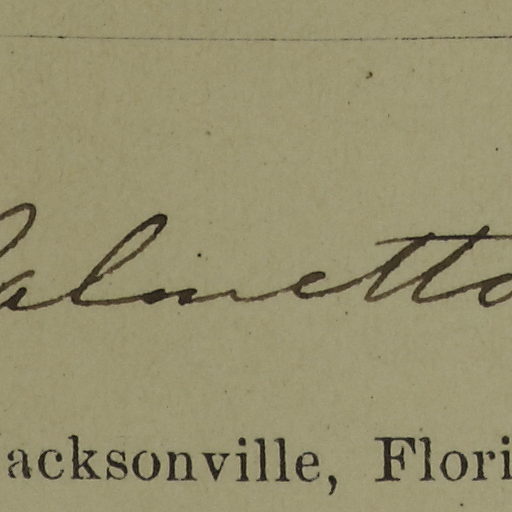 Palmetto
Jacksonville, Flori